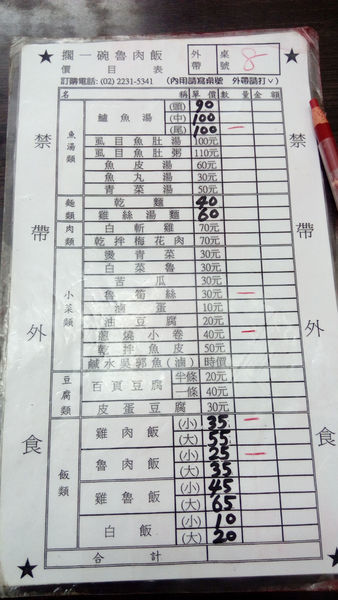 擱一碗魯肉飯
價目表
外帶 桌號 8
訂購電話: (02) 2231-5341 (內用請寫桌號 外帶請打∨)
名稱 單價 數量 金額
魚湯類
鱸魚湯 (頭) 90
(中) 100
(尾) 100 一
虱目魚肚湯 100元
虱目魚肚粥 110元
魚皮湯 60元
魚丸湯 30元
青菜湯 50元
麵類
乾麵 40
雞絲湯麵 60
肉類
白斬雞 70元
乾拌梅花肉 70元
小菜類
燙青菜 30元
白菜魯 30元
苦瓜 30元
魯筍絲 30元 一
滷蛋 10元
油豆腐 20元
蔥燒小卷 40元 一
乾拌魚皮 50元
鹹水吳郭魚(滷) 時價
豆腐類
百頁豆腐 半條 20元
一條 40元
皮蛋豆腐 30元
飯類
雞肉飯 (小) 35 一
(大) 55
魯肉飯 (小) 25 一
(大) 35
雞魯飯 (小) 45
(大) 65
白飯 (小) 10
(大) 20
合計
禁帶外食
禁帶外食